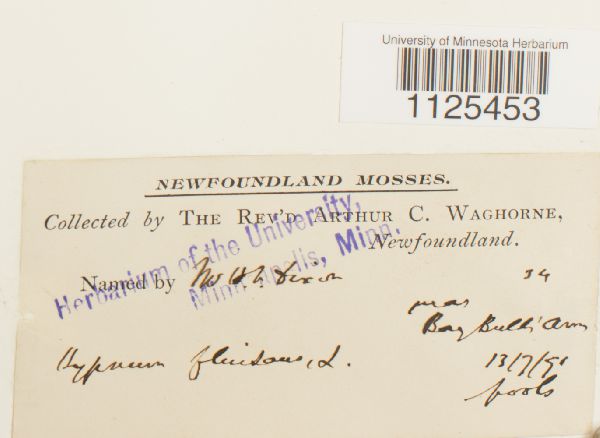 University of Minnesota Herbarium
1125453
NEWFOUNDLAND MOSSES.
Collected by THE REV'D ARTHUR C. WAGHORNE,
Newfoundland.
Herbarium of the University,
Minneapolis, Minn.
Named by Mr H N Dixon
34
near
Bay Bulls Arm
Hypnum fluitans, L.
13/7/91
pools